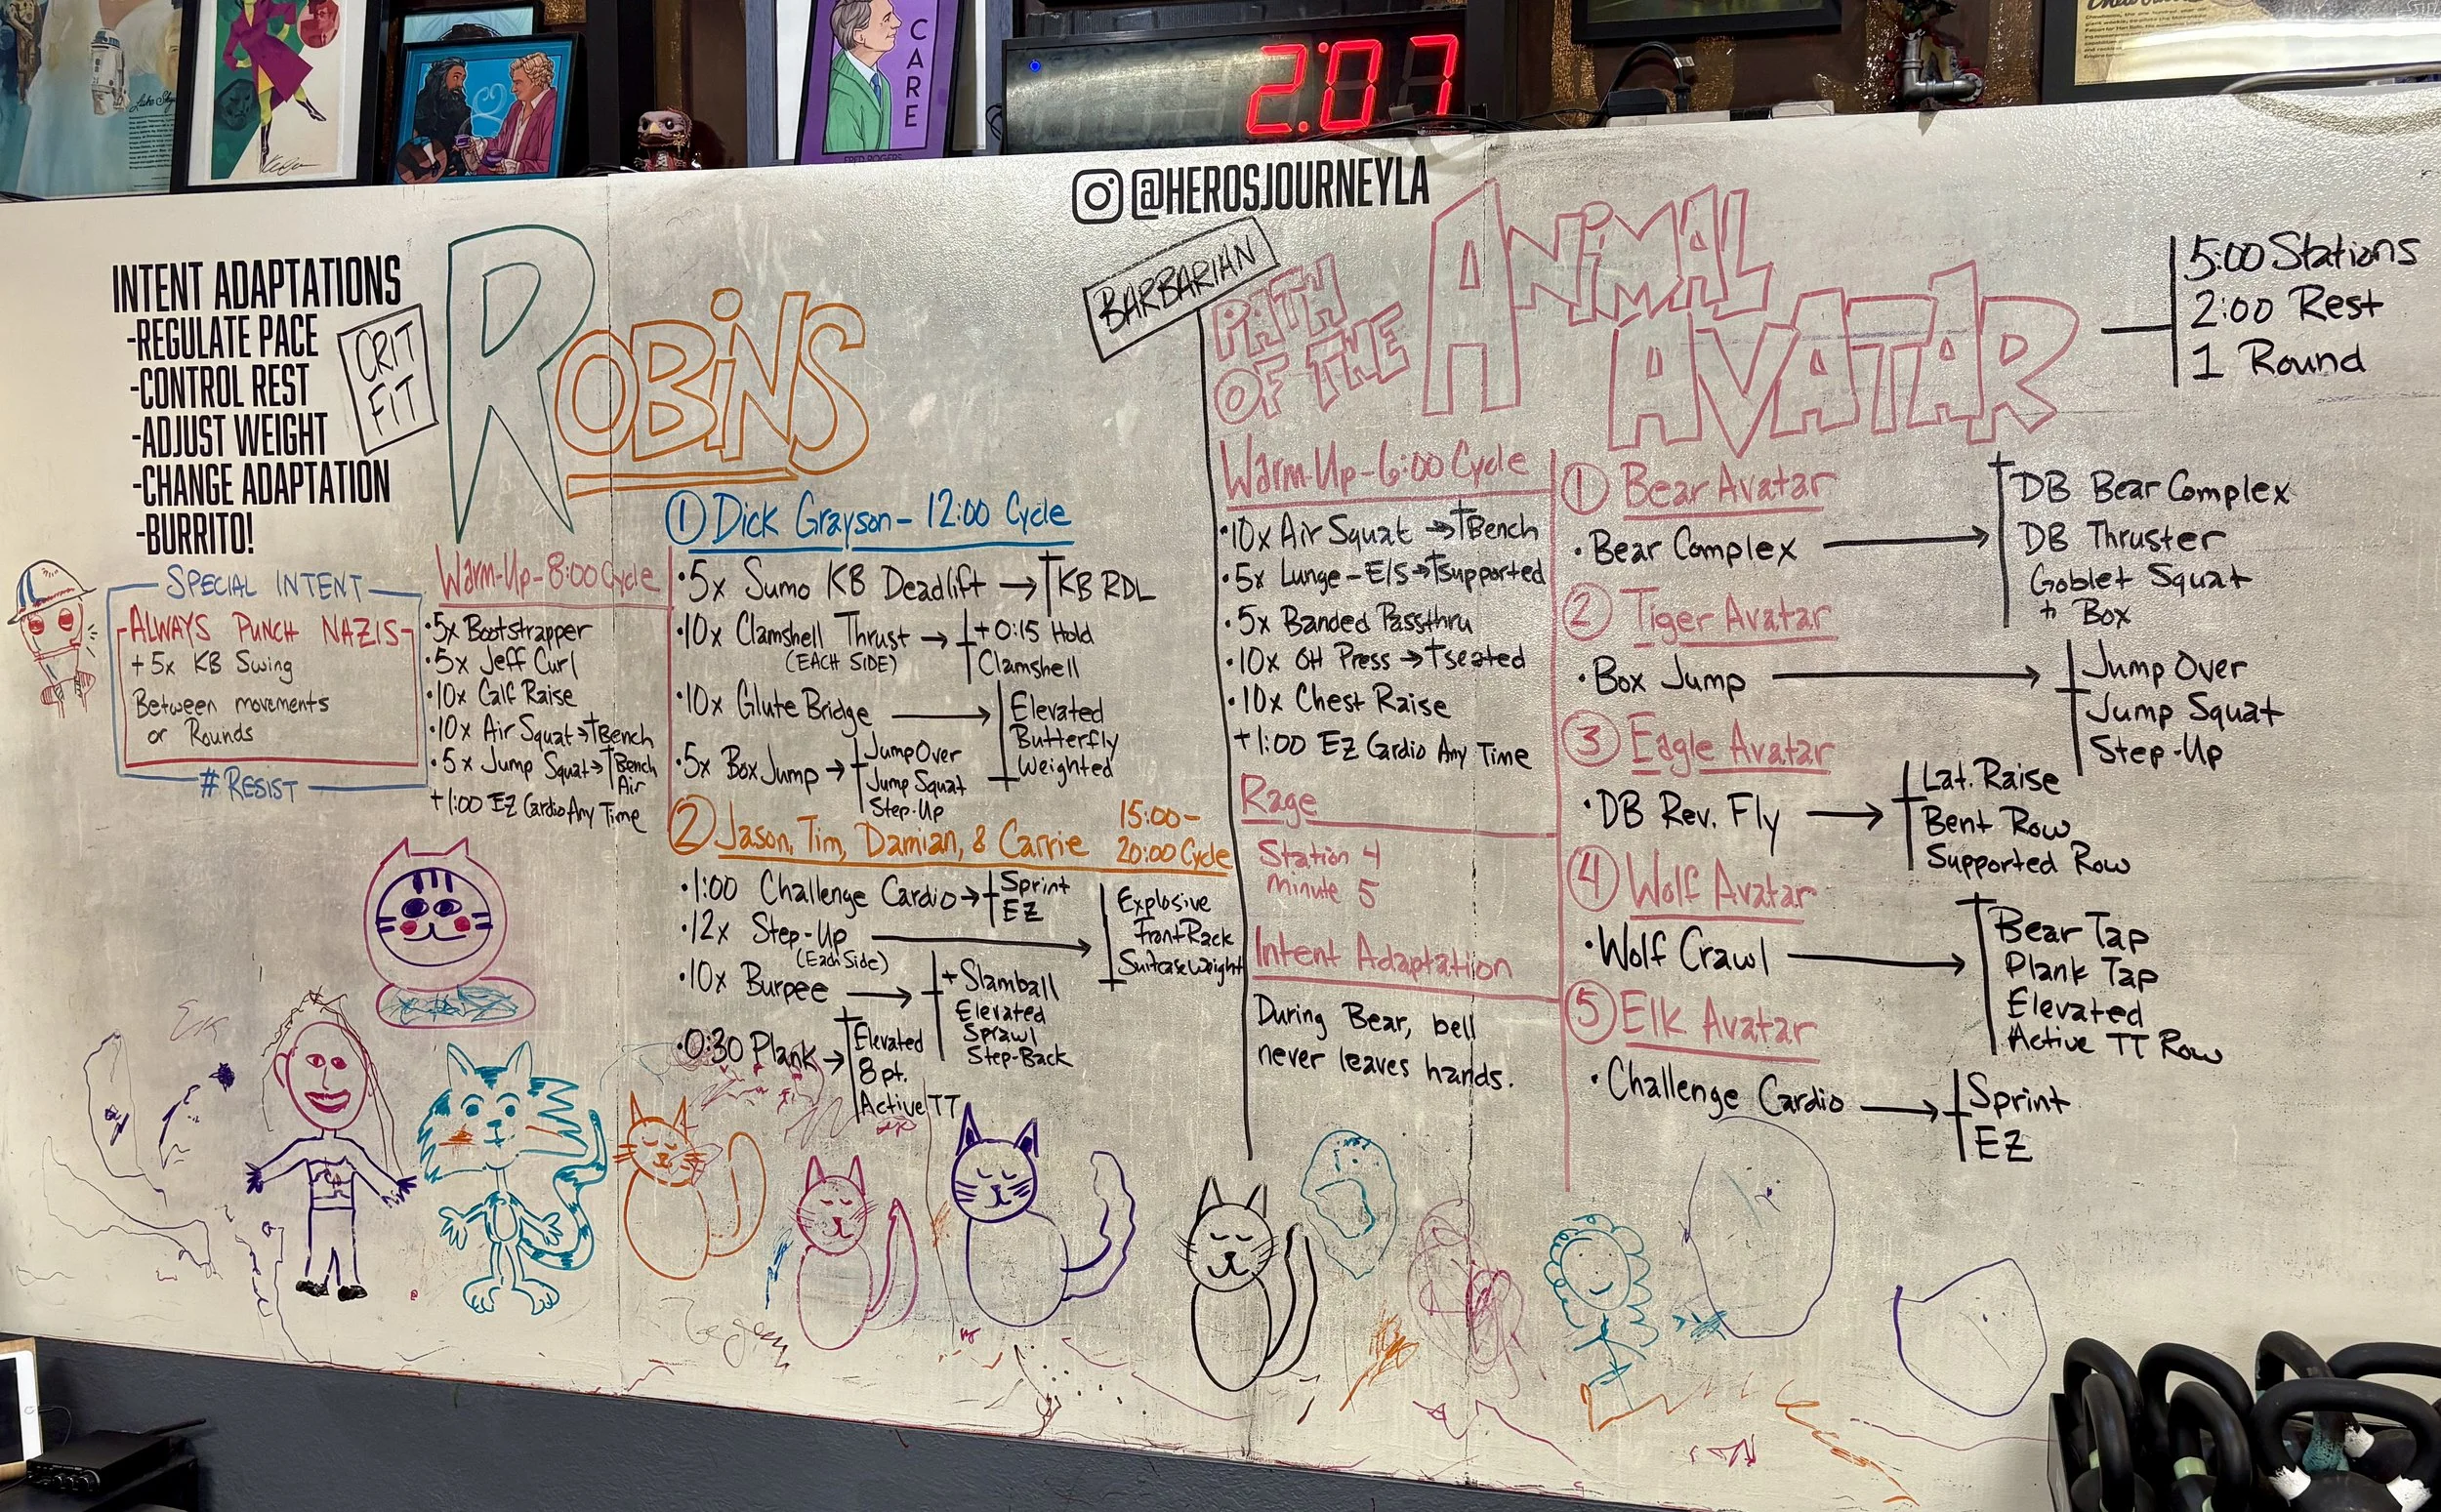 CARE
FRED ROGERS
2:07
@HEROSJOURNEYLA
INTENT ADAPTATIONS
-REGULATE PACE
-CONTROL REST
-ADJUST WEIGHT
-CHANGE ADAPTATION
-BURRITO!
CRIT
FIT
ROBINS
SPECIAL INTENT
ALWAYS PUNCH NAZIS
+5x KB Swing
Between movements
or Rounds
#RESIST
Warm-Up-8:00 Cycle
•5x Bootstrapper
•5x Jeff Curl
•10x Calf Raise
•10x Air Squat→Bench
•5x Jump Squat→Bench
Air
+1:00 EZ Cardio Any Time
① Dick Grayson- 12:00 Cycle
•5x Sumo KB Deadlift → KB RDL
•10x Clamshell Thrust → +0:15 Hold
(EACH SIDE) Clamshell
•10x Glute Bridge → Elevated
Butterfly
Weighted
•5x Box Jump → Jump Over
Jump Squat
Step-Up
② Jason, Tim, Damian, & Carrie 15:00-
20:00 Cycle
•1:00 Challenge Cardio → Sprint
EZ
•12x Step-Up → Explosive
(Each Side) Front Rack
Suitcase Weight
•10x Burpee → + Slamball
Elevated
Sprawl
Step-Back
•0:30 Plank → Elevated
8pt.
Active TT
BARBARIAN
PATH
OF THE
ANIMAL
AVATAR
5:00 Stations
2:00 Rest
1 Round
Warm-Up-6:00 Cycle
•10x Air Squat → Bench
•5x Lunge-E/S→ supported
•5x Banded Passthru
•10x OH Press → seated
•10x Chest Raise
+1:00 EZ Cardio Any Time
Rage
Station 4
Minute 5
Intent Adaptation
During Bear, bell
never leaves hands.
① Bear Avatar
•Bear Complex → DB Bear Complex
DB Thruster
Goblet Squat
+ Box
② Tiger Avatar
•Box Jump → Jump Over
Jump Squat
Step-Up
③ Eagle Avatar
•DB Rev. Fly → Lat. Raise
Bent Row
Supported Row
④ Wolf Avatar
•Wolf Crawl → Bear Tap
Plank Tap
Elevated
Active TT Row
⑤ Elk Avatar
•Challenge Cardio → Sprint
EZ